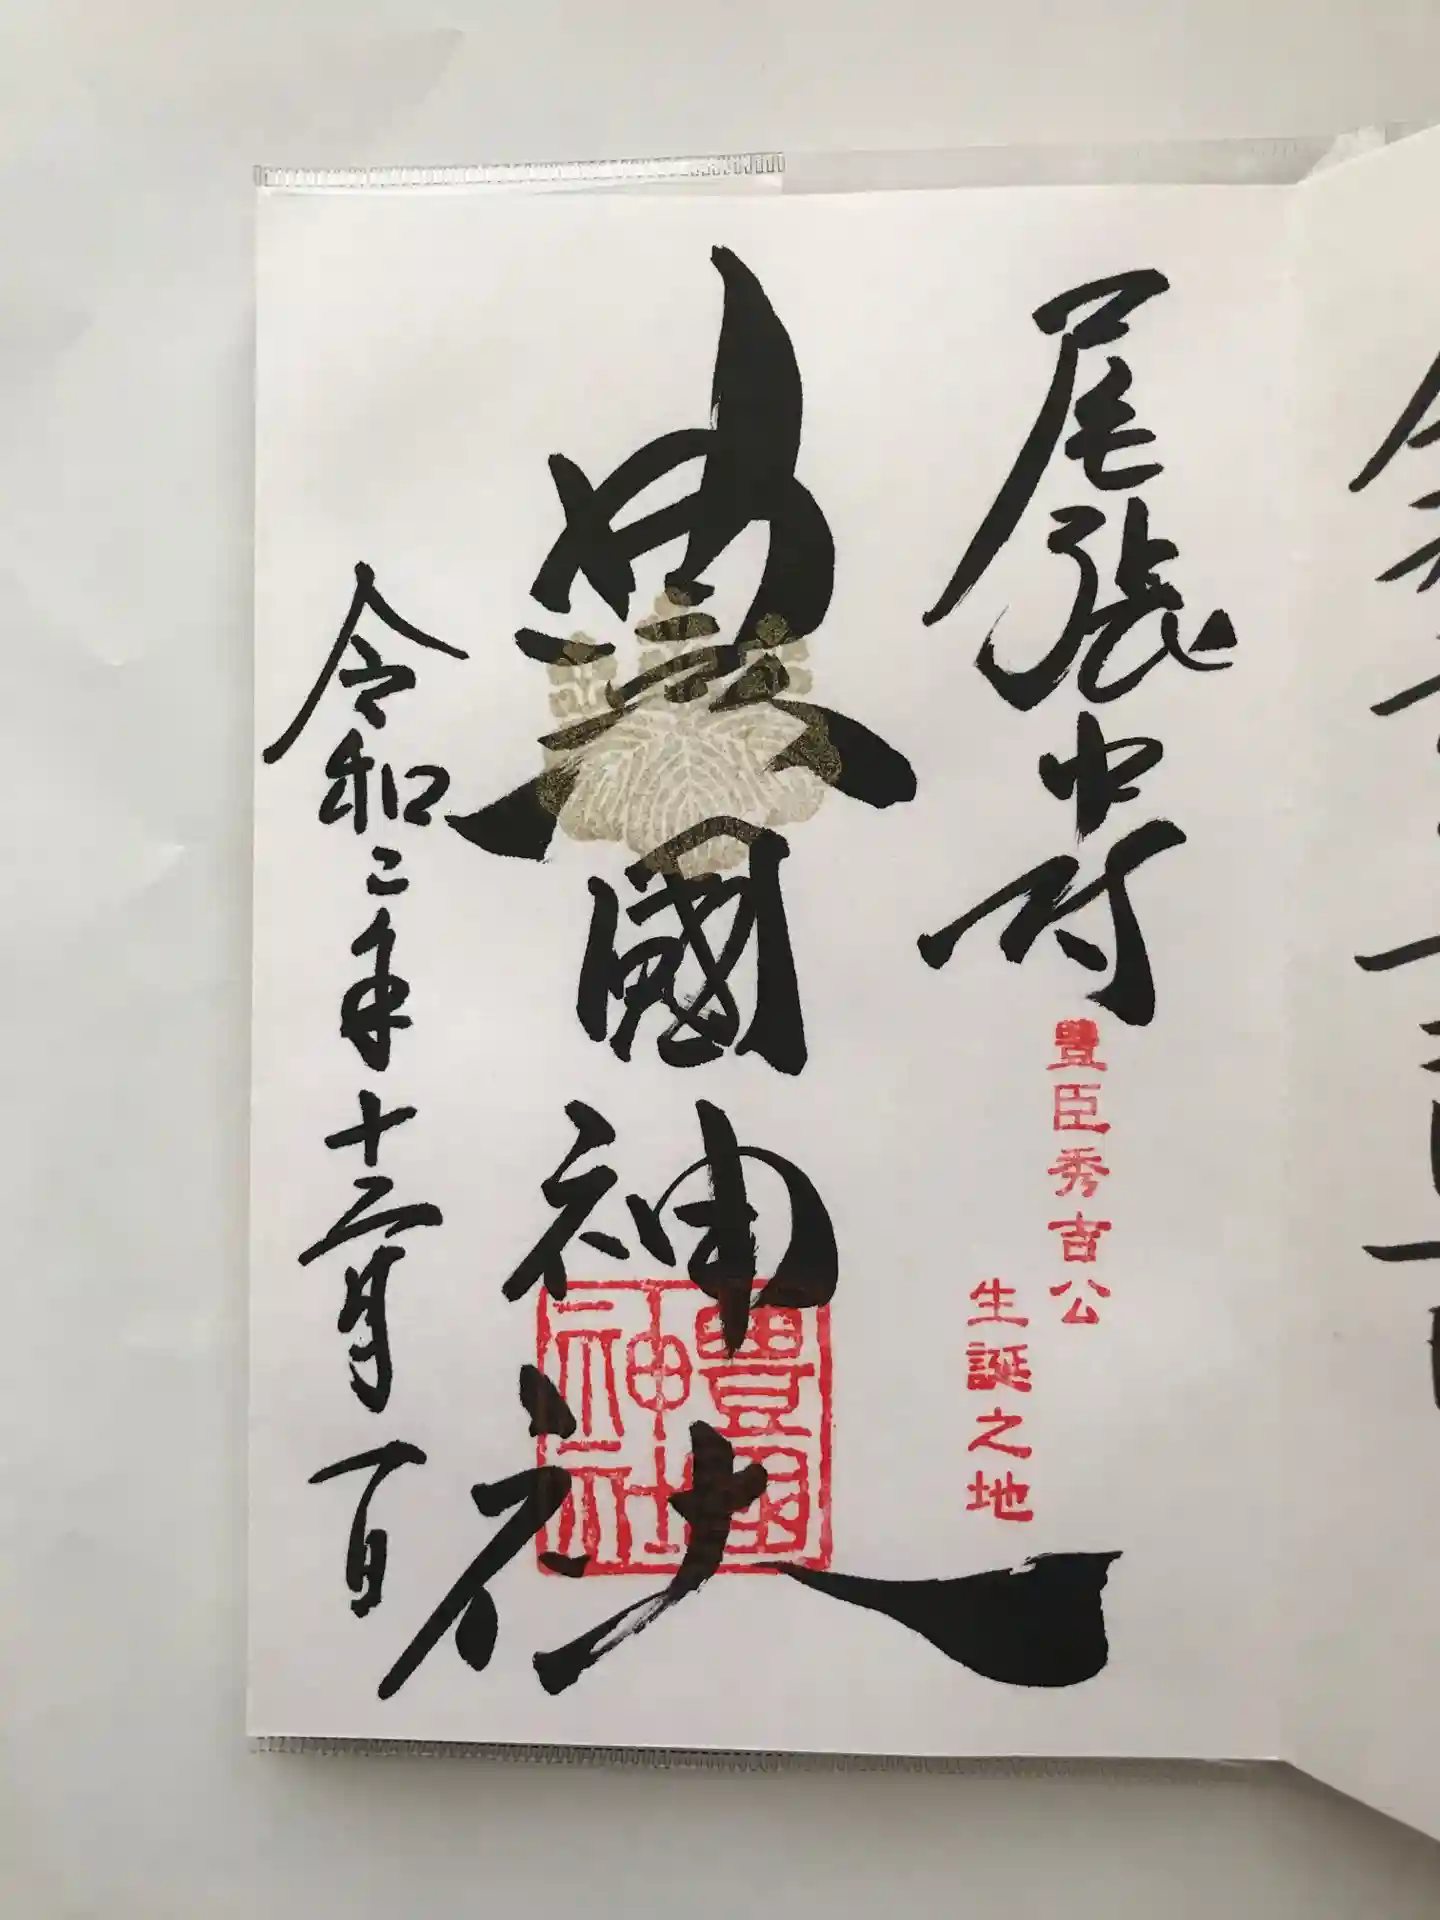 尾張中村
豐臣秀吉公
生誕之地
豊國神社
豊國神社
令和二年十二月一日